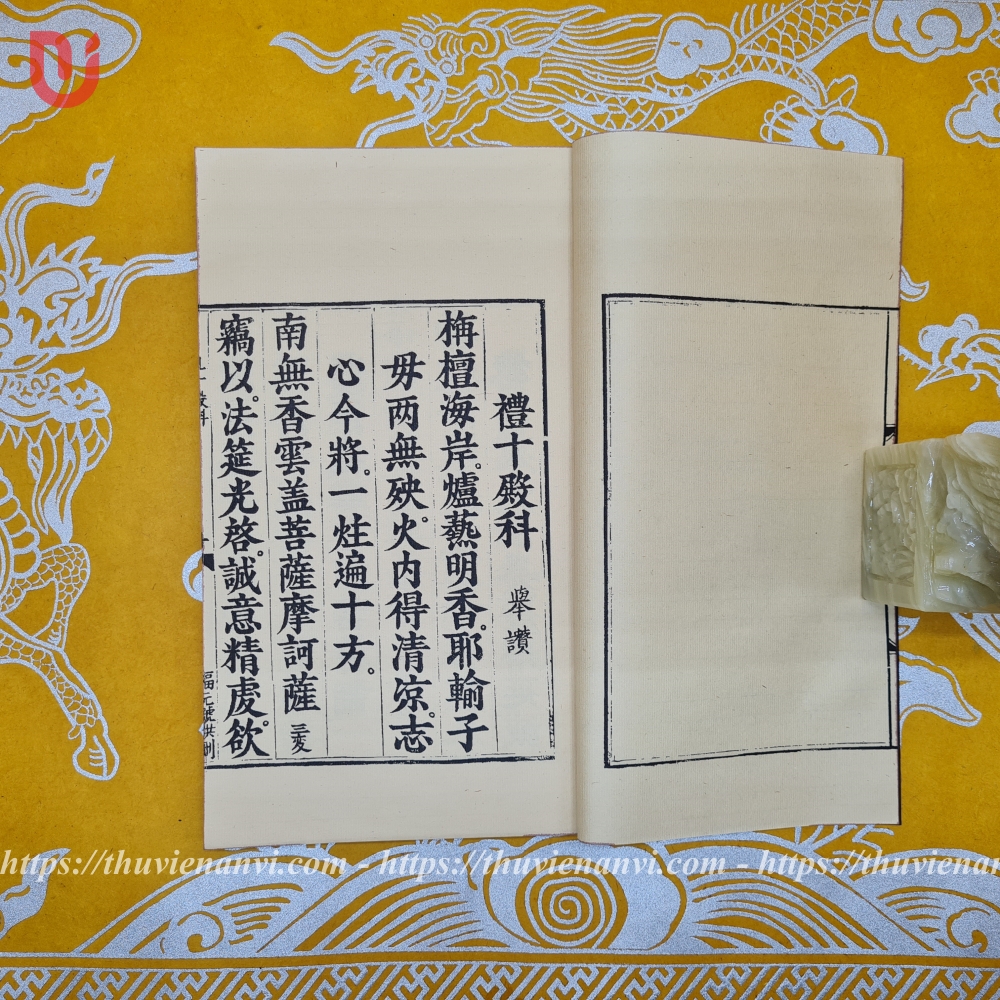 禮十殿科 舉讃
栴檀海岸。爐爇明香。耶輸子
毋两無殃。火内得清凉。志
心今將。一炷遍十方。
南無香雲盖菩薩摩訶薩 三変
竊以。法筵光啓。誠意精虔。欲
https://thuvienanvi.com - https://thuvienanvi.com - https://thuvienan